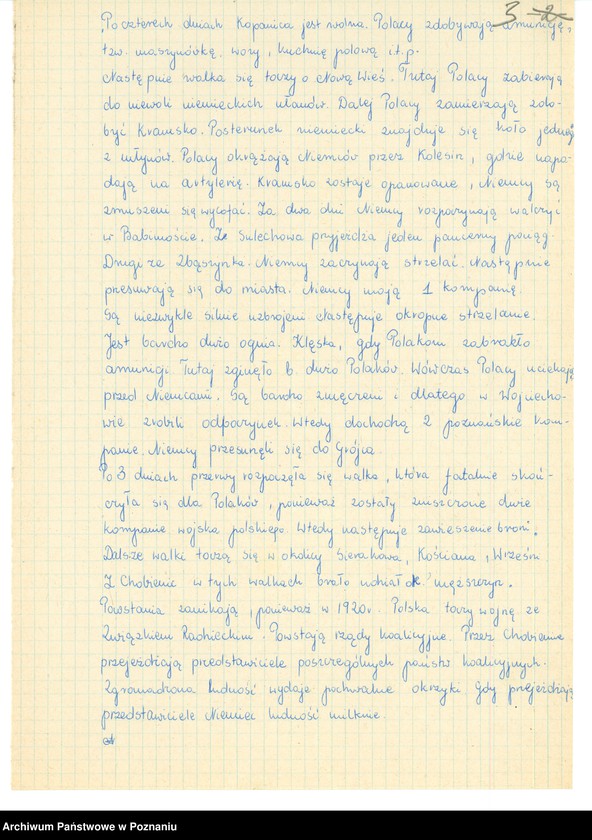 3 2
Po czterech dniach Kopanica jest wolna. Polacy zdobywają amunicję,
tzw. maszynówkę, wozy, kuchnię polową i.t.p.
Następnie walka się toczy o Nową Wieś. Tutaj Polacy zabierają
do niewoli niemieckich ułanów. Dalej Polacy zamierzają zdo-
być Kramsko. Posterunek niemiecki znajduje się koło jednego
z młynów. Polacy okrążają Niemców przez Kolesin, gdzie napa-
dają na artylerię. Kramsko zostaje opanowane, Niemcy są
zmuszeni się wycofać. Za dwa dni Niemcy rozpoczynają walczyć
w Babimoście. Z Sulechowa przyjeżdża jeden pancerny pociąg.
Drugi ze Zbąszynka. Niemcy zaczynają strzelać. Następnie
przesuwają się do miasta. Niemcy mają 1 kompanię.
Są niezwykle silnie uzbrojeni. Następuje okropne strzelanie.
Jest bardzo dużo ognia. Klęska, gdy Polakom zabrakło
amunicji. Tutaj zginęło b. dużo Polaków. Wówczas Polacy uciekają
przed Niemcami. Są bardzo zmęczeni i dlatego w Wojnecho-
wie zrobili odpoczynek. Wtedy dochodzą 2 poznańskie kom-
panie. Niemcy przesunęli się do Grójca.
Po 3 dniach przerwy rozpoczęła się walka, która fatalnie skoń-
czyła się dla Polaków, ponieważ zostały zniszczone dwie
kompanie wojska polskiego. Wtedy następuje zawieszenie broni.
Dalsze walki toczą się w okolicy Sierakowa, Kościana, Wrześni
Z Chobienic w tych walkach brało udział mężczyzn.
Powstania zanikają, ponieważ w 1920r. Polska toczy wojnę ze
Związkiem Radzieckim. Powstają rządy koalicyjne. Przez Chobienice
przejeżdżają przedstawiciele poszczególnych państw koalicyjnych.
Zgromadzona ludność wydaje pochwalne okrzyki. Gdy przejeżdżają
przedstawiciele Niemiec ludność milknie.
Archiwum Państwowe w Poznaniu